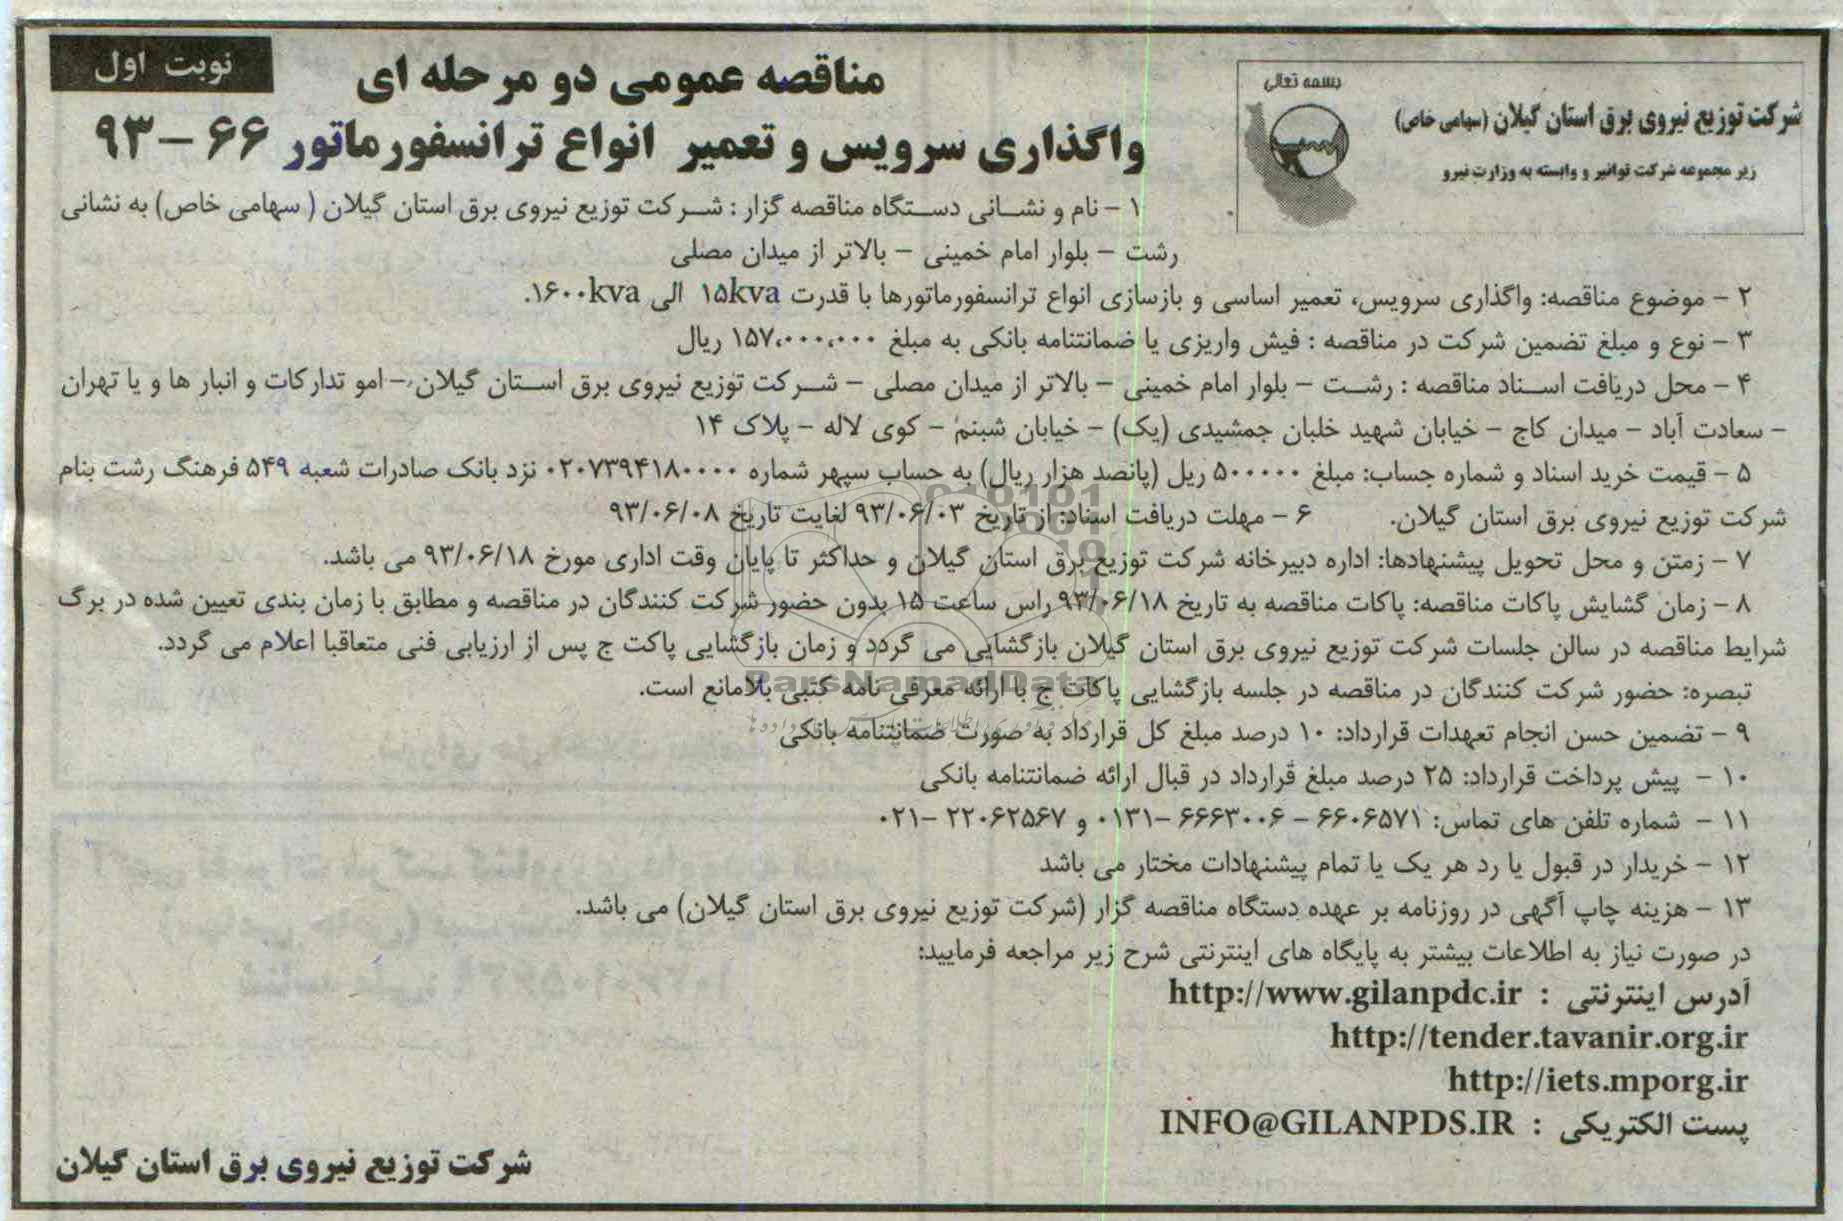 بسمه تعالی
شرکت توزیع نیروی برق استان گیلان (سهامی خاص)
زیر مجموعه شرکت توانیر و وابسته به وزارت نیرو
نوبت اول
مناقصه عمومی دو مرحله ای
واگذاری سرویس و تعمیر انواع ترانسفورماتور ۶۶ – ۹۳
۱ – نام و نشانی دستگاه مناقصه گزار : شرکت توزیع نیروی برق استان گیلان ( سهامی خاص) به نشانی
رشت – بلوار امام خمینی – بالاتر از میدان مصلی
۲ – موضوع مناقصه: واگذاری سرویس، تعمیر اساسی و بازسازی انواع ترانسفورماتورها با قدرت ۱۵kva الی ۱۶۰۰kva.
۳ – نوع و مبلغ تضمین شرکت در مناقصه : فیش واریزی یا ضمانتنامه بانکی به مبلغ ۱۵۷،۰۰۰،۰۰۰ ریال
۴ – محل دریافت اسناد مناقصه : رشت – بلوار امام خمینی – بالاتر از میدان مصلی – شرکت توزیع نیروی برق استان گیلان – امو تدارکات و انبار ها و یا تهران
– سعادت آباد – میدان کاج – خیابان شهید خلبان جمشیدی (یک) – خیابان شبنم – کوی لاله – پلاک ۱۴
۵ – قیمت خرید اسناد و شماره حساب: مبلغ ۵۰۰۰۰۰ ریل (پانصد هزار ریال) به حساب سپهر شماره ۰۲۰۷۳۹۴۱۸۰۰۰۰ نزد بانک صادرات شعبه ۵۴۹ فرهنگ رشت بنام
شرکت توزیع نیروی برق استان گیلان. ۶ – مهلت دریافت اسناد: از تاریخ ۹۳/۰۶/۰۳ لغایت تاریخ ۹۳/۰۶/۰۸
۷ – زمتن و محل تحویل پیشنهادها: اداره دبیرخانه شرکت توزیع برق استان گیلان و حداکثر تا پایان وقت اداری مورخ ۹۳/۰۶/۱۸ می باشد.
۸ – زمان گشایش پاکات مناقصه: پاکات مناقصه به تاریخ ۹۳/۰۶/۱۸ راس ساعت ۱۵ بدون حضور شرکت کنندگان در مناقصه و مطابق با زمان بندی تعیین شده در برگ
شرایط مناقصه در سالن جلسات شرکت توزیع نیروی برق استان گیلان بازگشایی می گردد و زمان بازگشایی پاکت ج پس از ارزیابی فنی متعاقبا اعلام می گردد.
تبصره: حضور شرکت کنندگان در مناقصه در جلسه بازگشایی پاکات ج با ارائه معرفی نامه کتبی بلامانع است.
ParsNamadData
۹ – تضمین حسن انجام تعهدات قرارداد: ۱۰ درصد مبلغ کل قرارداد به صورت ضمانتنامه بانکی
۱۰ – پیش پرداخت قرارداد: ۲۵ درصد مبلغ قرارداد در قبال ارائه ضمانتنامه بانکی
۱۱ – شماره تلفن های تماس: ۶۶۰۶۵۷۱ – ۶۶۶۳۰۰۶ –۰۱۳۱ و ۲۲۰۶۲۵۶۷ –۰۲۱
۱۲ – خریدار در قبول یا رد هر یک یا تمام پیشنهادات مختار می باشد
۱۳ – هزینه چاپ آگهی در روزنامه بر عهده دستگاه مناقصه گزار (شرکت توزیع نیروی برق استان گیلان) می باشد.
در صورت نیاز به اطلاعات بیشتر به پایگاه های اینترنتی شرح زیر مراجعه فرمایید:
آدرس اینترنتی : http://www.gilanpdc.ir
http://tender.tavanir.org.ir
http://iets.mporg.ir
پست الکتریکی : INFO@GILANPDS.IR
شرکت توزیع نیروی برق استان گیلان